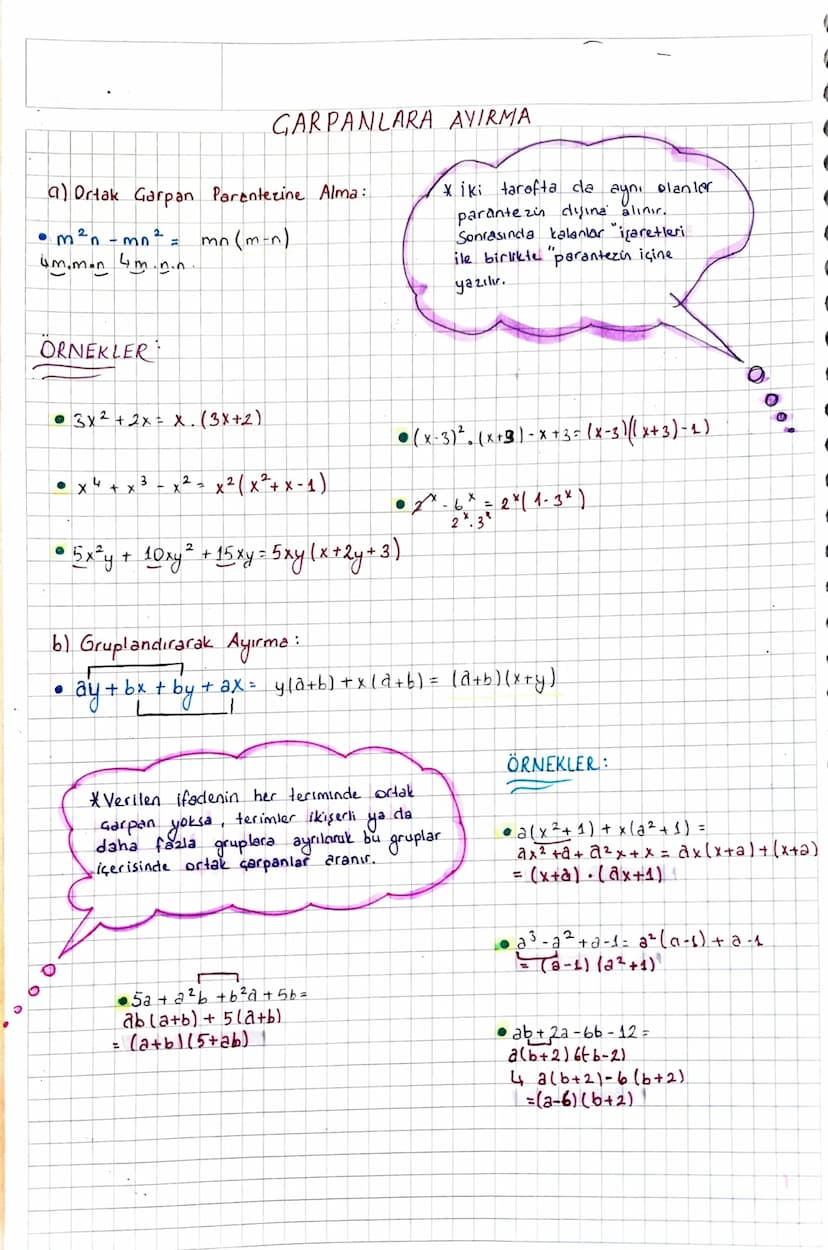 ÇARPANLARA AYIRMA
a) Ortak Çarpan Parantezine Alma:
• m²n - mn² = mn(m-n)
↳m.m.n ↳m.n.n
* iki tarafta da aynı olanlar
parantezin dışına alınır.
Sonrasında kalanlar "işaretleri
ile birlikte" parantezin içine
yazılır.
ÖRNEKLER:
• 3x² + 2x = x.(3x+2)
• x⁴ + x³ - x² = x²(x²+x-1)
• 5x²y + 10xy² + 15xy = 5xy(x+2y+3)
• (x-3)².(x+3)-x+3 = (x-3)((x+3)-1)
• 2ˣ - 6ˣ = 2ˣ(1-3ˣ)
2ˣ.3ˣ
b) Gruplandırarak Ayırma:
• ay + bx + by + ax = y(a+b)+x(a+b) = (a+b)(x+y)
* Verilen ifadenin her teriminde ortak
çarpan yoksa, terimler ikişerli ya da
daha fazla gruplara ayrılarak bu gruplar
içerisinde ortak çarpanlar aranır.
• 5a + a²b + b²a + 5b =
ab(a+b) + 5(a+b)
= (a+b)(5+ab)
ÖRNEKLER:
• a(x²+1) + x(a²+1) =
ax²+a+a²x+x = ax(x+a)+(x+a)
= (x+a).(ax+1)
• a³-a²+a-1 = a²(a-1)+a-1
= (a-1)(a²+1)
• ab+2a-6b-12 =
a(b+2) 6(-b-2)
↳ a(b+2)-6(b+2)
=(a-6)(b+2)